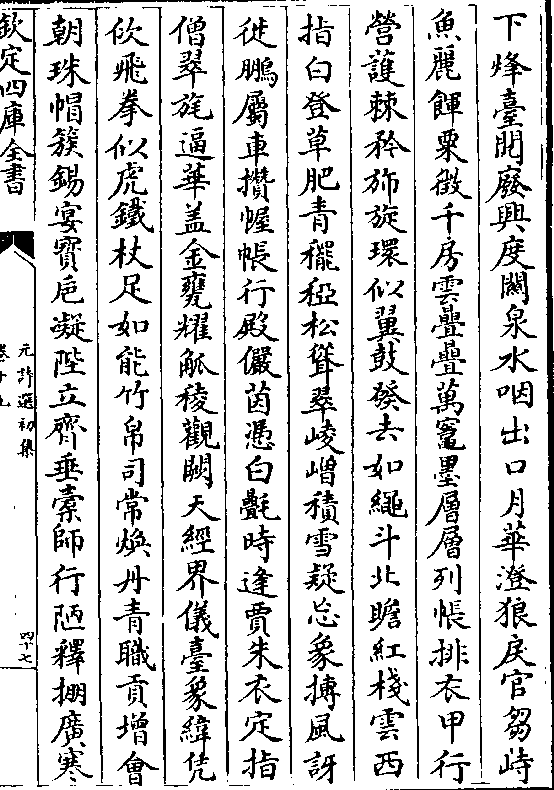 下烽臺閱廢興度關泉水咽出口月華澄狼戾官芻峙
魚麗餫粟徵千房雲疊疊萬竈墨層層列帳排衣甲行
營護棘矜斾旋環似翼鼓發去如繩斗北瞻紅棧雲西
指白登草肥青䆉稏松聳翠崚嶒積雪疑忘象摶風訝
徙鵬屬車攢幄帳行殿儼茵憑白氎時逢賈朱衣定指
僧翠旄逼華盖金甕耀觚稜觀闕天經界儀臺象緯凭
佽飛拳似虎鐵杖足如能竹帛司常煥丹青職貢增會
朝珠帽簇錫宴寳巵凝陛立齊垂橐師行陋釋掤廣寒
欽定四庫全書
元詩選初集
卷十九
四十七